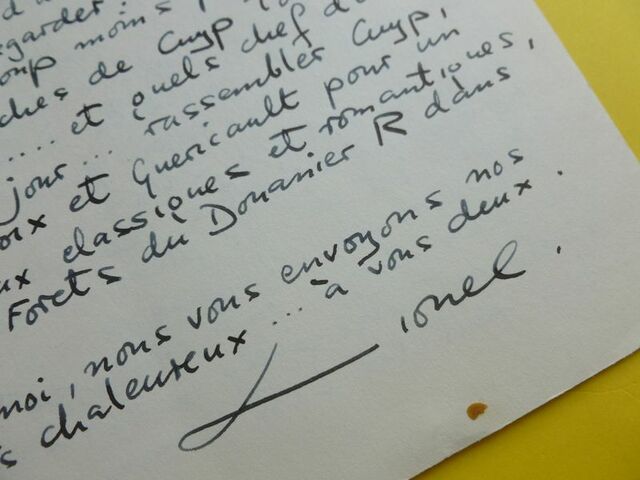 egarder :
oup moins
ches de Cuyp
.... et quels chef d
jour ... rassembler Cuyp,
oix et Guericault pour un
ux classiques et romantiques,
Forets du Douanier R dans
moi, nous vous envoyons nos
s chaleureux ... à vous deux.
Lionel.